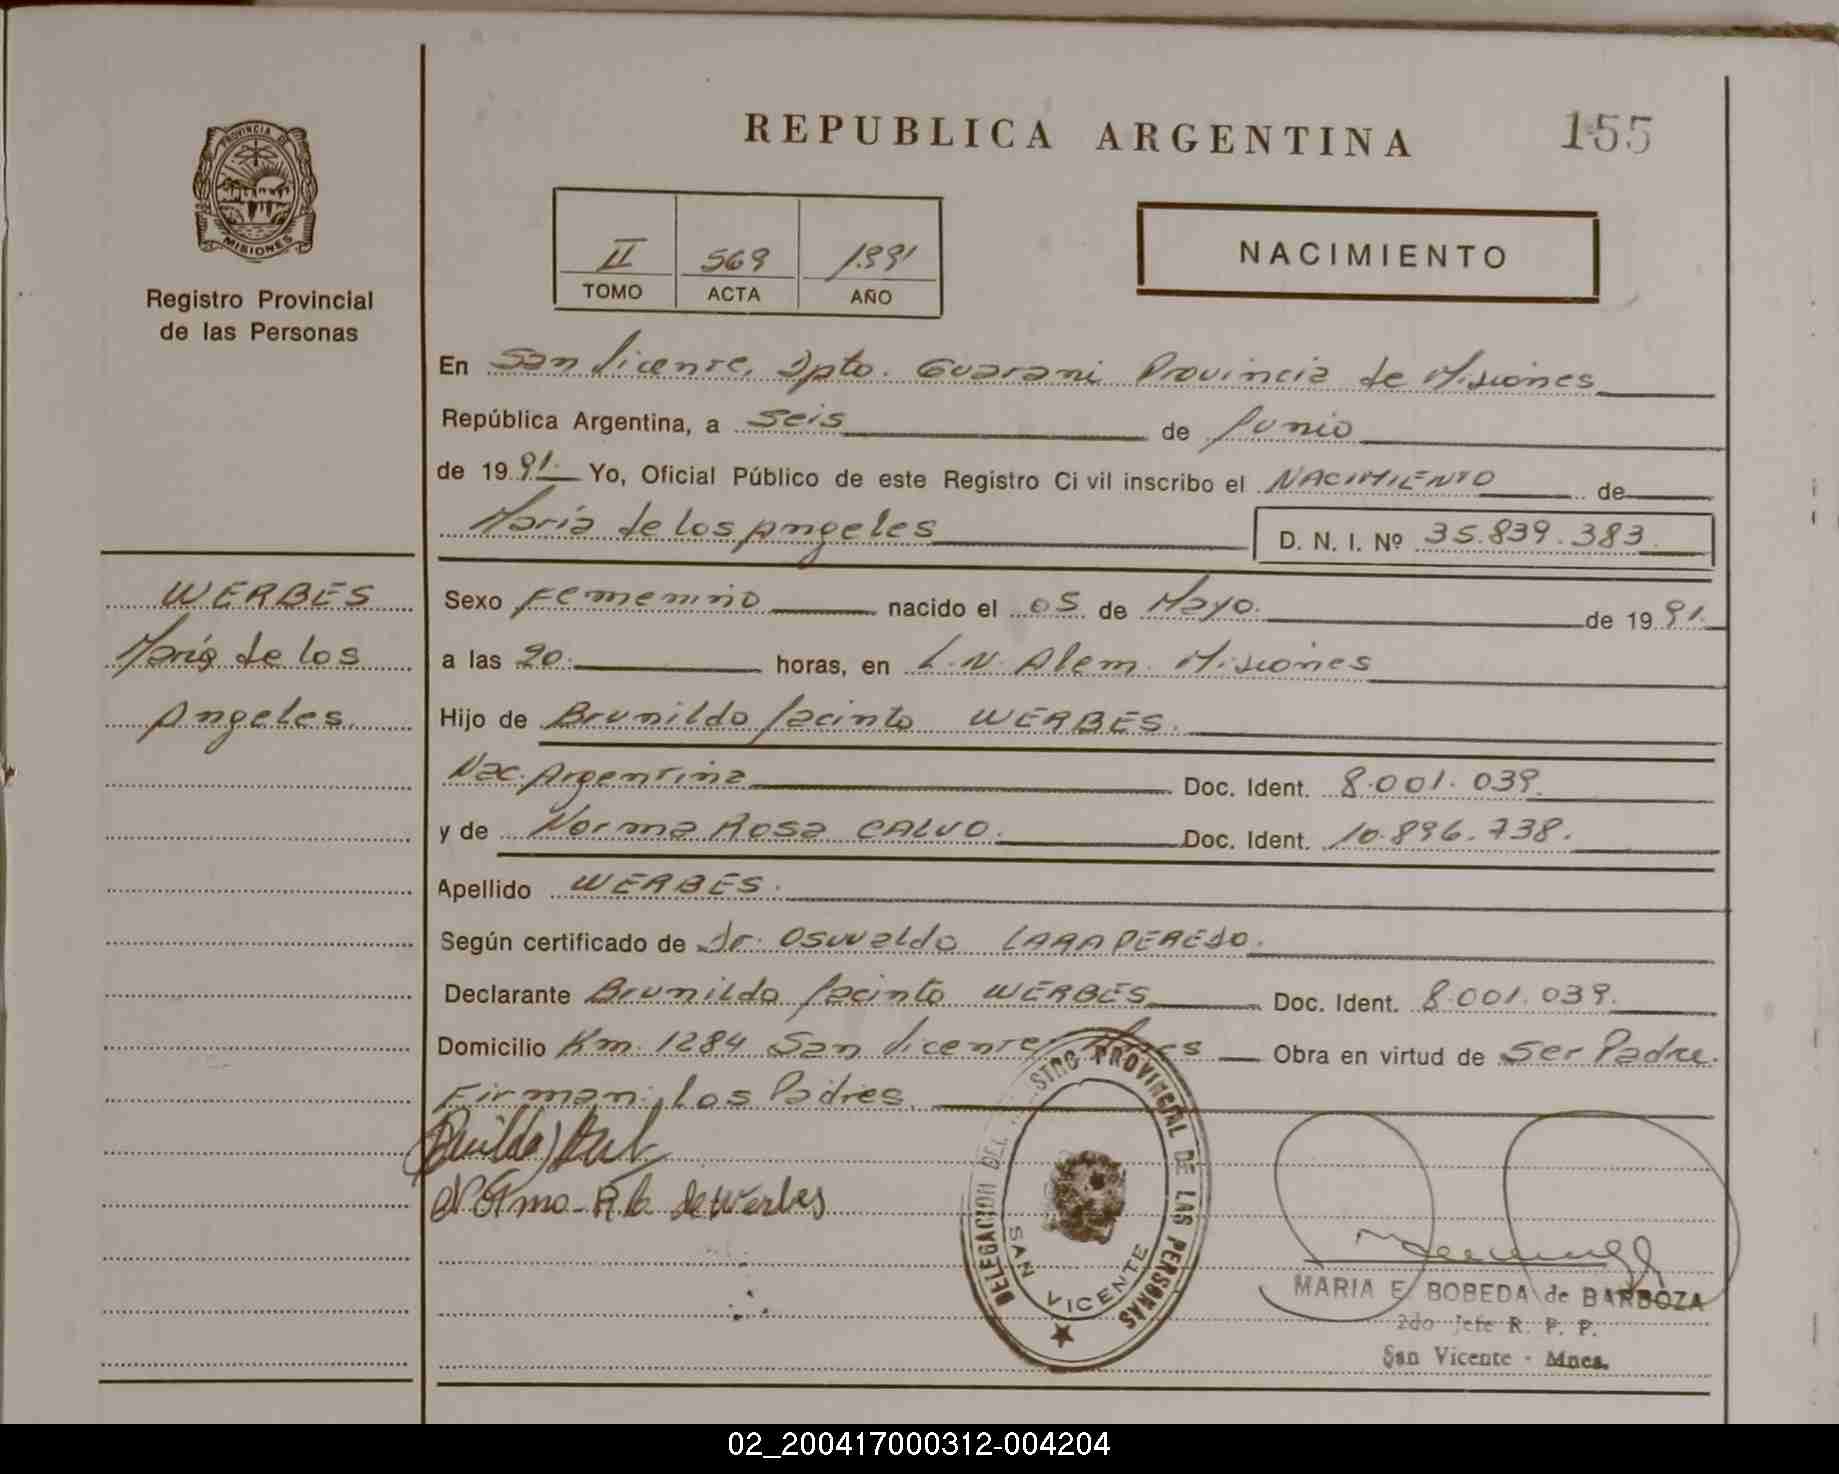 REPUBLICA ARGENTINA 155
PROVINCIA DE
MISIONES
Registro Provincial
de las Personas
II 569 1991
TOMO ACTA AÑO
NACIMIENTO
En San Vicente, Dpto. Guarani Provincia de Misiones
República Argentina, a Seis de Junio
de 1991. Yo, Oficial Público de este Registro Ci vil inscribo el NACIMIENTO de
María de los Angeles D. N. I. Nº 35.839.383
WERBES
María de los
Angeles.
Sexo Femenino nacido el 05 de Mayo. de 1991.
a las 20. horas, en L.N. Alem. Misiones
Hijo de Brunildo Jacinto WERBES.
Nac. Argentina Doc. Ident. 8.001.039.
y de Norma Rosa CALVO. Doc. Ident. 10.896.738.
Apellido WERBES.
Según certificado de Dr. Osvvaldo
Declarante Brunildo Jacinto WERBES Doc. Ident. 8.001.039.
Domicilio Km. 1284 San Vicente, Mnes Obra en virtud de Ser Padre.
Firman: Los Padres.
de Werbes
DELEGACION DEL REGISTRO PROVINCIAL DE LAS PERSONAS
SAN VICENTE
MARIA E. BOBEDA de BARBOZA
2do Jefe R. P. P.
San Vicente - Mnes.
02_200417000312-004204